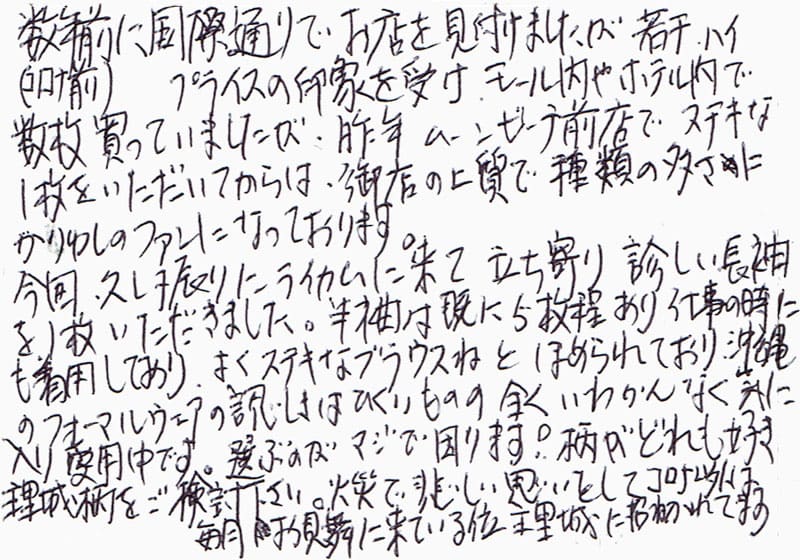 数年前に国際通りでお店を見付けましたが 若干ハイ
(コロナ前) プライスの印象を受け モール内やホテル内で
数枚買っていましたが、昨年 ムーンビーチ前店で ステキな
1枚をいただいてからは、御店の上質で 種類の多さに
かりゆしのファンになっております。
今回、久し振りにライカムに来て 立ち寄り 診しい長袖
を1枚いただきました。半袖は既に5枚程あり 仕事の時に
も着用しており、よくステキなブラウスねとほめられており、沖縄
のフォーマルウェアの説しはひくいものの 全くいわかんなく 気に
入り 愛用中です。選ぶのがマジで困ります! 柄がどれも好き
理城柄をご検討下さい。火災で悲しい思いとしてコロナ以外は
毎月 お見舞に来ている位 王里城に招かれてます